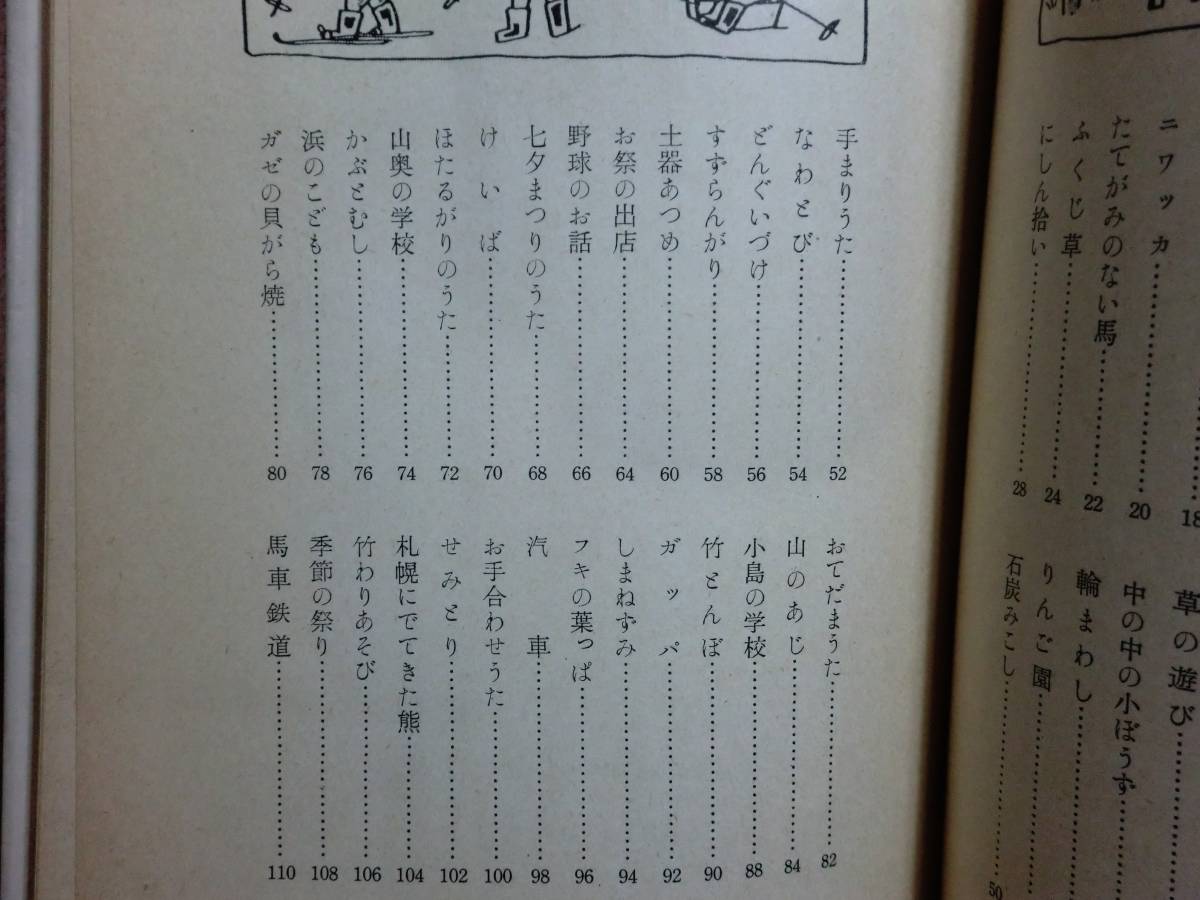 ニワッカ…………18
たてがみのない馬…………20
ふくじ草…………22
にしん拾い…………24
28
草の遊び…………
中の中の小ぼうず…………
輪まわし…………
りんご園…………
石炭みこし…………50
手まりうた…………52
なわとび…………54
どんぐいづけ…………56
すずらんがり…………58
土器あつめ…………60
お祭の出店…………64
野球のお話…………66
七夕まつりのうた…………68
けいば…………70
ほたるがりのうた…………72
山奥の学校…………74
かぶとむし…………76
浜のこども…………78
ガゼの貝がら焼…………80
おてだまうた…………82
山のあじ…………84
小島の学校…………88
竹とんぼ…………90
ガッパ…………92
しまねずみ…………94
フキの葉っぱ…………96
汽車…………98
お手合わせうた…………100
せみとり…………102
札幌にでてきた熊…………104
竹わりあそび…………106
季節の祭り…………108
馬車鉄道…………110